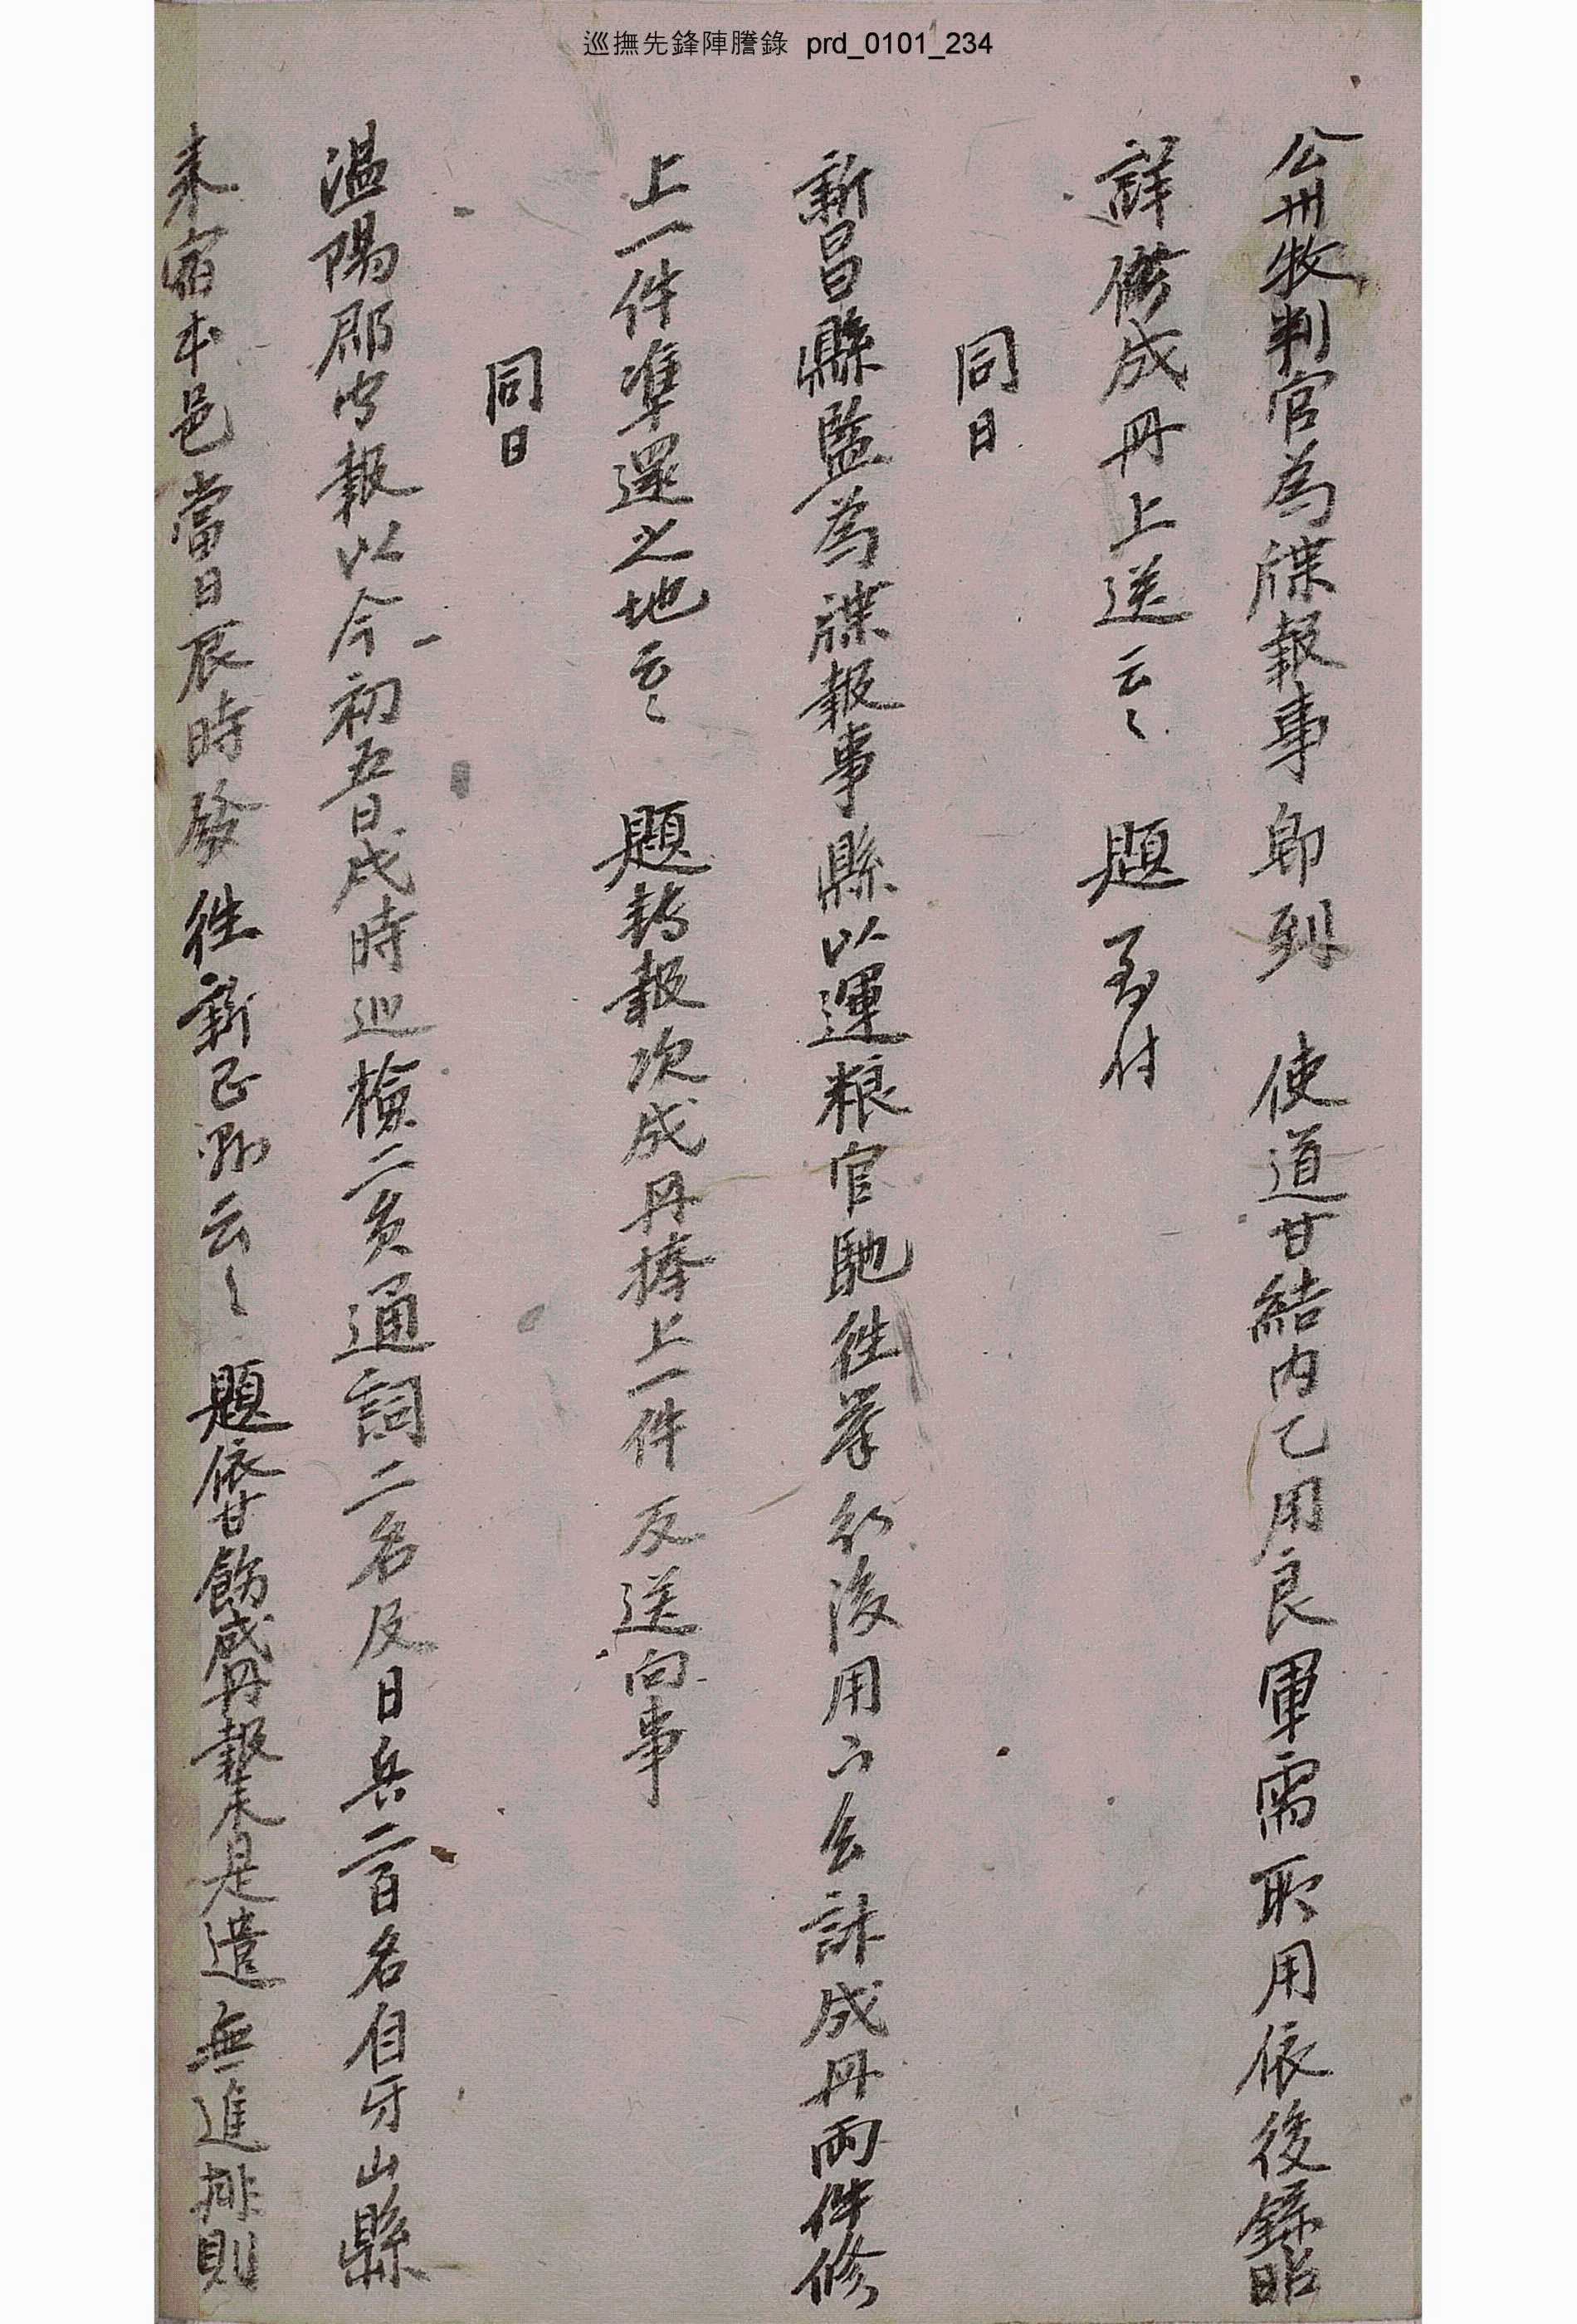 巡撫先鋒陣謄錄 prd_0101_234
公州牧判官爲牒報事卽到 使道甘結內乙用良軍需取用依後錄昭
詳修成冊上送云々 題 到付
同日
新昌縣監爲牒報事縣以運粮官馳往擧行後用下會計成冊兩件修
上一件準還之地云々 題轉報次成冊捧上一件反送向事
同日
溫陽郡守報以今初五日戌時巡檢二員通詞二名及日兵二百名自牙山縣
來宿本邑當日辰時發往新昌縣云々 題依甘飭成冊報來是遣無進排則